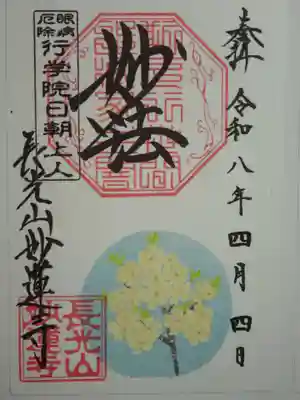 奉拝
令和八年四月四日
妙法
眼病
厄除
行学院日朝上人
長光山妙蓮寺
長光山
妙蓮寺